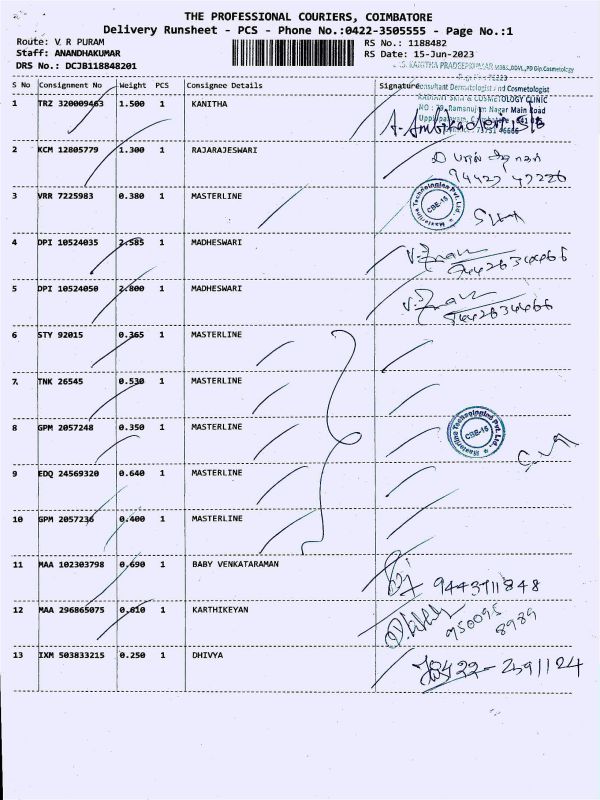 THE PROFESSIONAL COURIERS, COIMBATORE
Delivery Runsheet - PCS - Phone No.:0422-3505555 - Page No.:1
Route: V R PURAM
RS No.: 1188482
Staff: ANANDHAKUMAR
RS Date: 15-Jun-2023
DRS No.: DCJB118848201
S No Consignment No Weight PCS Consignee Details Signature
Consultant Dermatologist and Cosmetologist
SKIN & COSMETOLOGY CLINIC
Nagar Main Road
1 TRZ 320009463 1.500 1 KANITHA
2 KCM 12805779 1.300 1 RAJARAJESWARI
94427 47226
3 VRR 7225983 0.380 1 MASTERLINE
Masterline Technologies Pvt. Ltd.
CBE-15
4 DPI 10524035 2.585 1 MADHESWARI
9442634466
5 DPI 10524050 2.800 1 MADHESWARI
9442634466
6 STY 92015 0.365 1 MASTERLINE
7. TNK 26545 0.530 1 MASTERLINE
8 GPM 2057248 0.350 1 MASTERLINE
Masterline Technologies Pvt. Ltd.
CBE-15
9 EDQ 24569320 0.640 1 MASTERLINE
10 GPM 2057236 0.400 1 MASTERLINE
11 MAA 102303798 0.690 1 BABY VENKATARAMAN
9443711848
12 MAA 296865075 0.610 1 KARTHIKEYAN
950095
8989
13 IXM 503833215 0.250 1 DHIVYA
0422-2591124